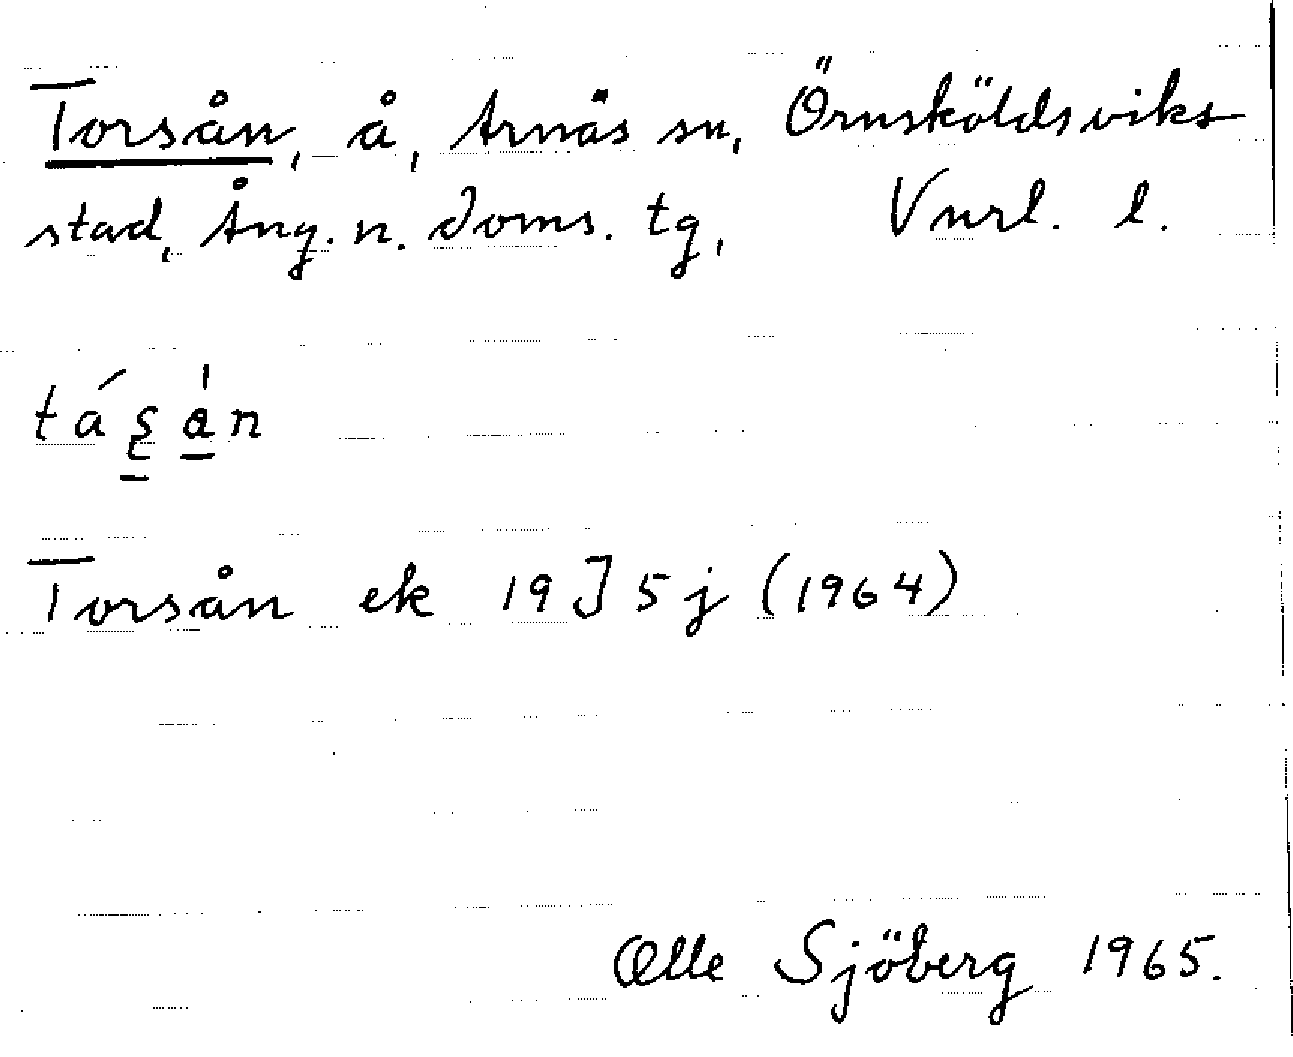 Torsån, å, Arnäs sn, Örnsköldsviks
stad, Ång. n. doms. tg, Vnrl. l.
Torsån ek 19 J 5 j (1964)
Olle Sjöberg 1965.